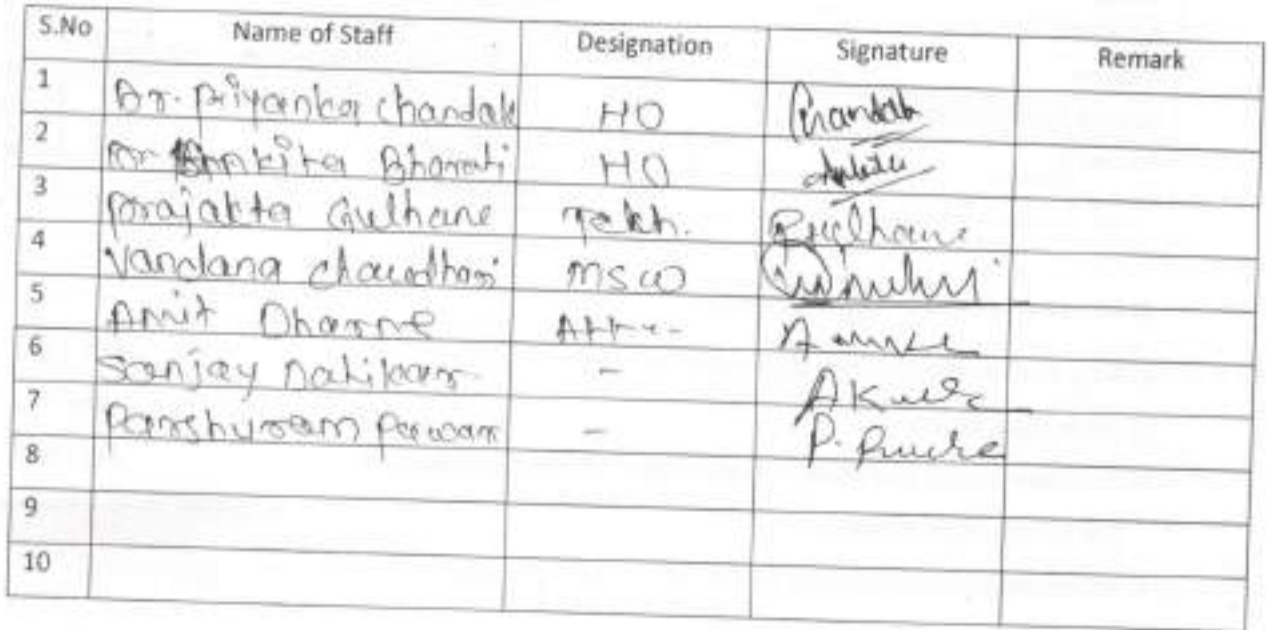 S.No Name of Staff Designation Signature Remark
1 Dr. Priyanka Chandak HO Chandak
2 Dr Ankita Bharati HO Ankita
3 Prajakta Gulhane Tekh. PGulhane
4 Vandana Chaudhari MSW
5 Amit Dharme
6 Sanjay -
7 Parshuram Pawar -
8
9
10